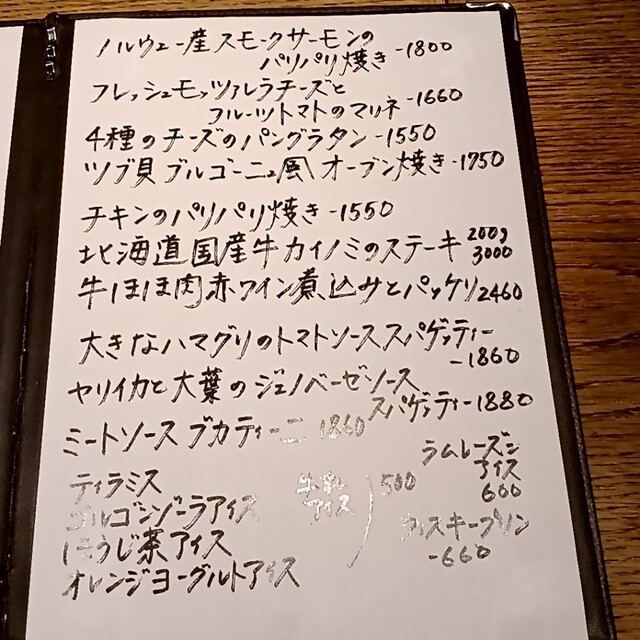 ノルウェー産スモークサーモンの
パリパリ焼き-1800
フレッシュモッツァレラチーズと
フルーツトマトのマリネ-1660
4種のチーズのパングラタン-1550
ツブ貝ブルゴーニュ風オーブン焼き-1750
チキンのパリパリ焼き-1550
北海道国産牛カイノミのステーキ 200g 3000
牛ほほ肉赤ワイン煮込みとパッケリ2460
大きなハマグリのトマトソーススパゲッティー
-1860
ヤリイカと大葉のジェノベーゼソース
スパゲッティー1880
ミートソースブカティーニ 1860
ティラミス
ゴルゴンゾーラアイス
ほうじ茶アイス
オレンジヨーグルトアイス
アイス
500
ラムレーズン
アイス
600
ウィスキープリン
-660